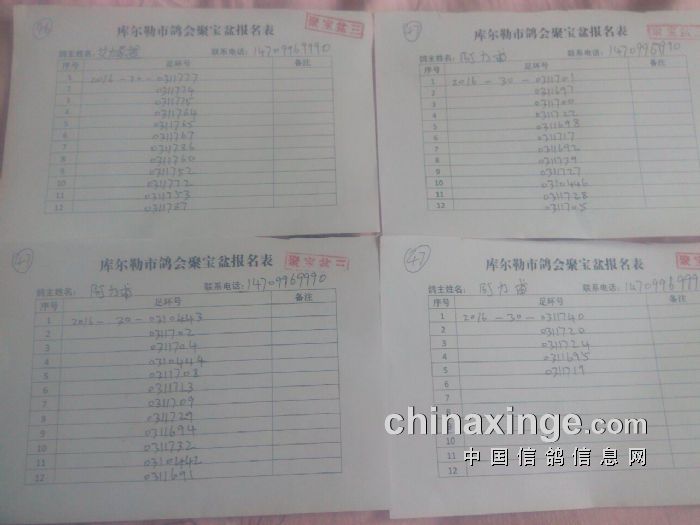 46
库尔勒市鸽会聚宝盆报名表
聚宝盆三
鸽主姓名：
联系电话：14709969990
序号 足环号 备注
1 2016-30-0311777
2 0311774
3 0311775
4 0311764
5 0311765
6 0311767
7 0311786
8 0311760
9 0311752
10 0311772
11 0311753
12 0311787
47
库尔勒市鸽会聚宝盆报名表
聚宝盆三
鸽主姓名：阿力甫
联系电话：14709969990
序号 足环号 备注
1 2016-30-0311701
2 0311697
3 0311700
4 0311722
5 0311698
6 0311717
7 0311692
8 0311739
9 0311727
10 0310446
11 0311728
12 0311705
47
库尔勒市鸽会聚宝盆报名表
聚宝盆三
鸽主姓名：阿力甫
联系电话：14709969990
序号 足环号 备注
1 2016-30-0310443
2 0311702
3 0311704
4 0310444
5 0311708
6 0311713
7 0311709
8 0311729
9 0311694
10 0311732
11 0310442
12 0311691
47
库尔勒市鸽会聚宝盆报名表
聚宝盆三
鸽主姓名：阿力甫
联系电话：14709969990
序号 足环号 备注
1 2016-30-0311740
2 0311720
3 0311724
4 0311695
5 0311719
6
7
8
9
10
11
12
chinaxinge.com
中国信鸽信息网